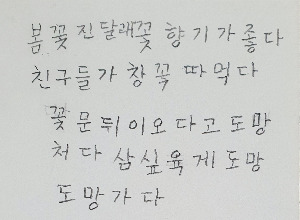 봄 꽃 진달래꽃 향기가 좋다
친구들가 창꽃 따먹다
꽃 문뒤이오다고 도망
처다 삼십육게도망
도망가다